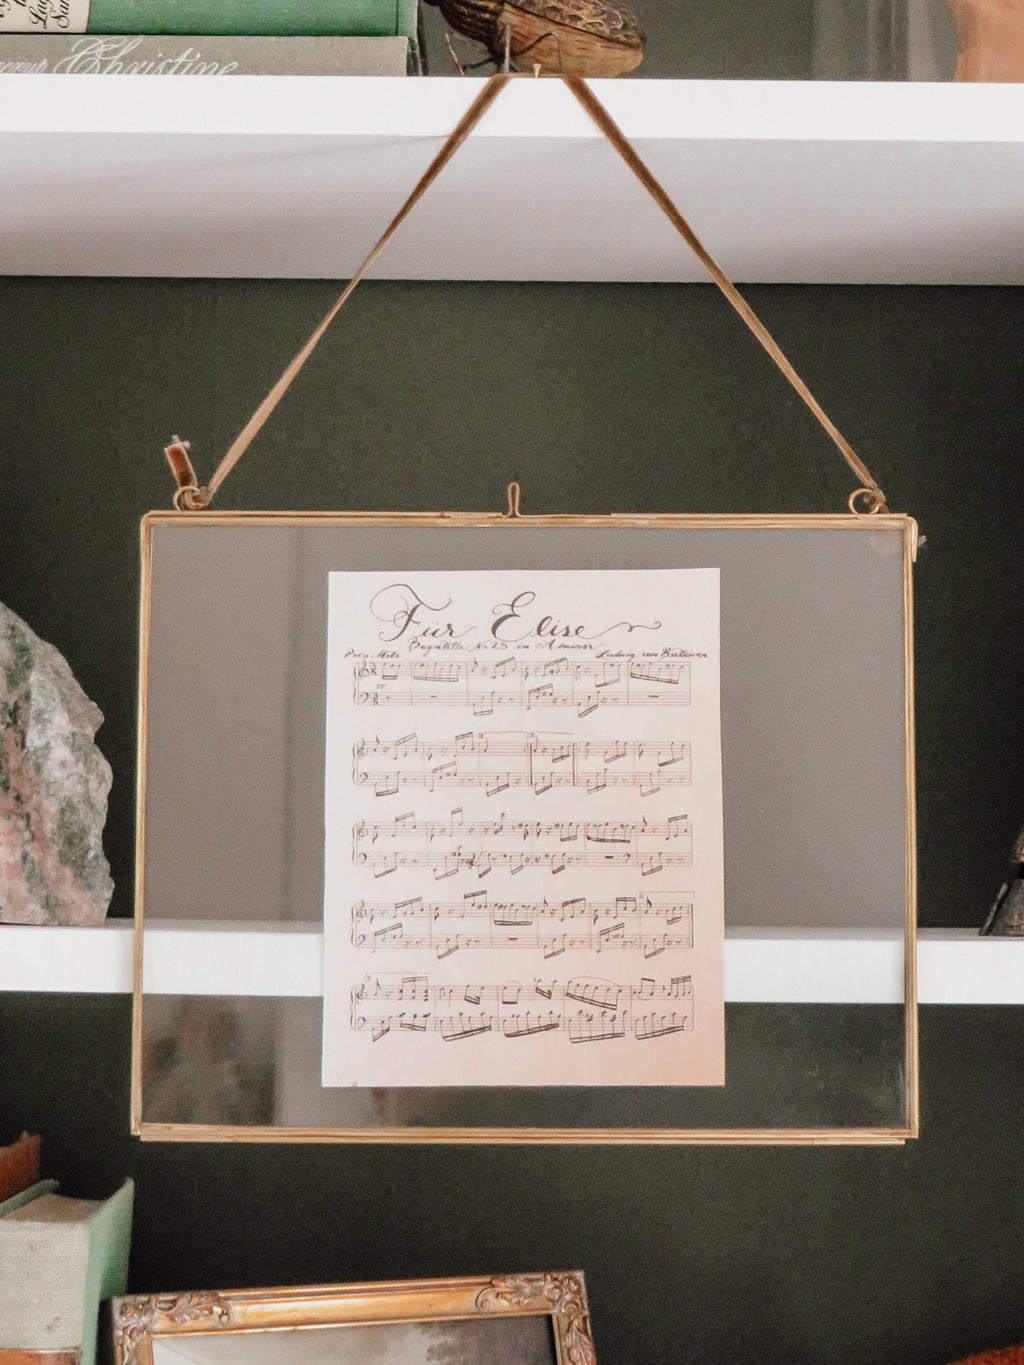 Christine
Für Elise
Bagatelle No 25 in A minor
Poco Moto
Ludwig van Beethoven